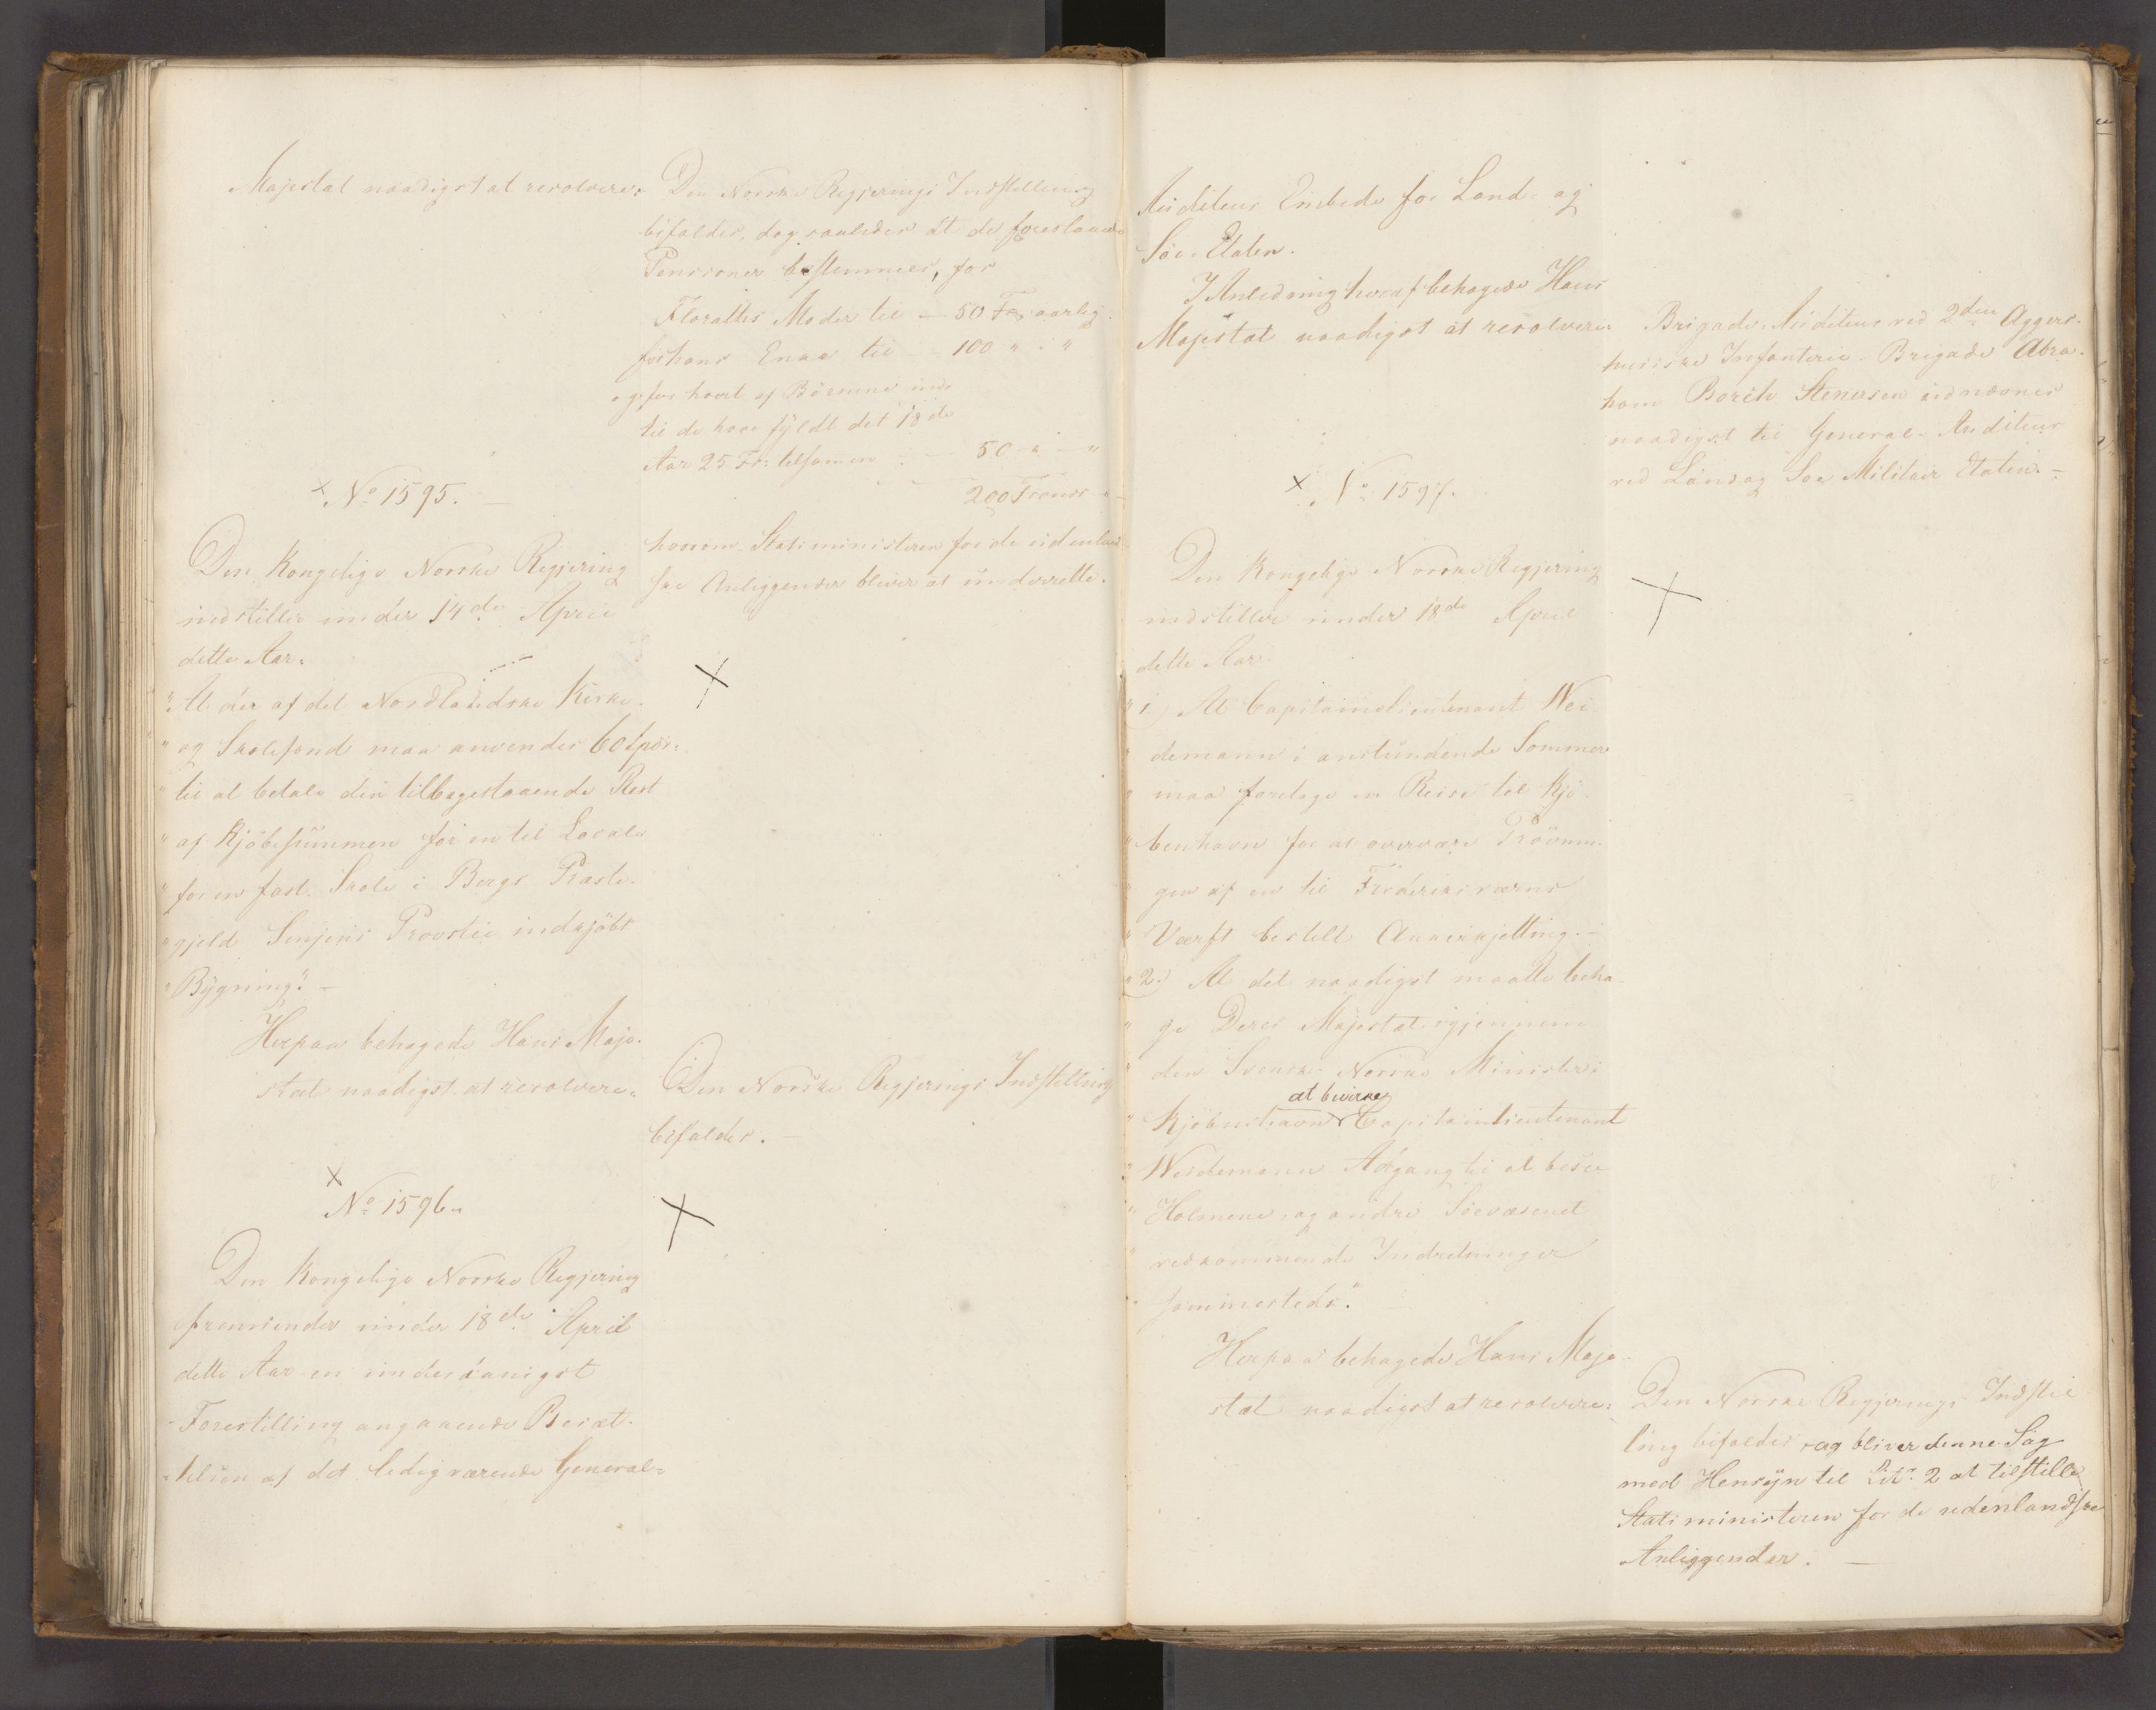 Majestæt naadigst at resolvere:
Den Norske Regjerings Indstilling
bifaldes, dog saaledes at de foreslaaede
Pensioner bestemmes, for
Floraths Moder til — 50 Fr. aarlig.
for hans Enke til — 100 " : "
og for hvert af Börnene ind-
til de have fyldt det 18de
Aar 25 Fr: tilsamen — 50 - " — "
200 Francs
hvorom Statsministeren for de udenland-
ske Anliggender bliver at underrette.
× No 1595. —
Den Kongelige Norske Regjering
indstiller under 14de April
dette Aar.
"At der af det Nordlandske Kirke-
" og Skolefond maa anvendes 60 spdr:
" til at betale den tilbagestaaende Rest
" af Kjöbesummen for en til Locale
" for en fast Skole i Bergs Præste-
" gjeld Senjens Provstie indkjöbt
" Bygning". —
Herpaa behagede Hans Maje-
stæt naadigst at resolvere:
Den Norske Regjerings Indstilling
bifaldes. —
×
No 1596.
Den Kongelige Norske Regjering
fremsender under 18de April
dette Aar en underdanigst
Forestilling angaaende Besæt-
telsen af det ledigværende General-
Auditeur Embede for Land- og
Söe-Etaten.
I Anledning hvoraf behagede Hans
Majestæt naadigst at resolvere:
Brigade-Auditeur ved 2den Aggers-
huusiske Infanterie-Brigade Abra-
ham Borch Stenersen udnævnes
naadigst til General-Auditeur
ved Land og Söe Militair Etaten. —
× No 1597.
Den Kongelige Norske Regjering
indstiller under 18de April
dette Aar.
" 1.) At Capitainlieutenant Wei-
" demann i anstundende Sommer
" maa foretage en Reise til Kjö-
" benhavn for at overvære Prövnin-
" gen af en til Frideriksværns
" Værft bestilt Ankerkjetting. —
" 2.) At det naadigst maatte beha-
" ge Deres Majestæt igjennem
" den Svenske-Norske Minister i
at bevirke
" Kjöbenhavn Capitainlieutenant
" Weidemann Adgang til at besee
" Holmene og andre Söevæsenet
" vedkommende Indretninger
" sammesteds".
Herpaa behagede Hans Maje-
stæt naadigst at resolvere:
Den Norske Regjerings Indstil-
ling bifaldes, og bliver denne Sag
med Hensyn til Litr. 2 at tilstille
Statsministeren for de udenlandske
Anliggender. —